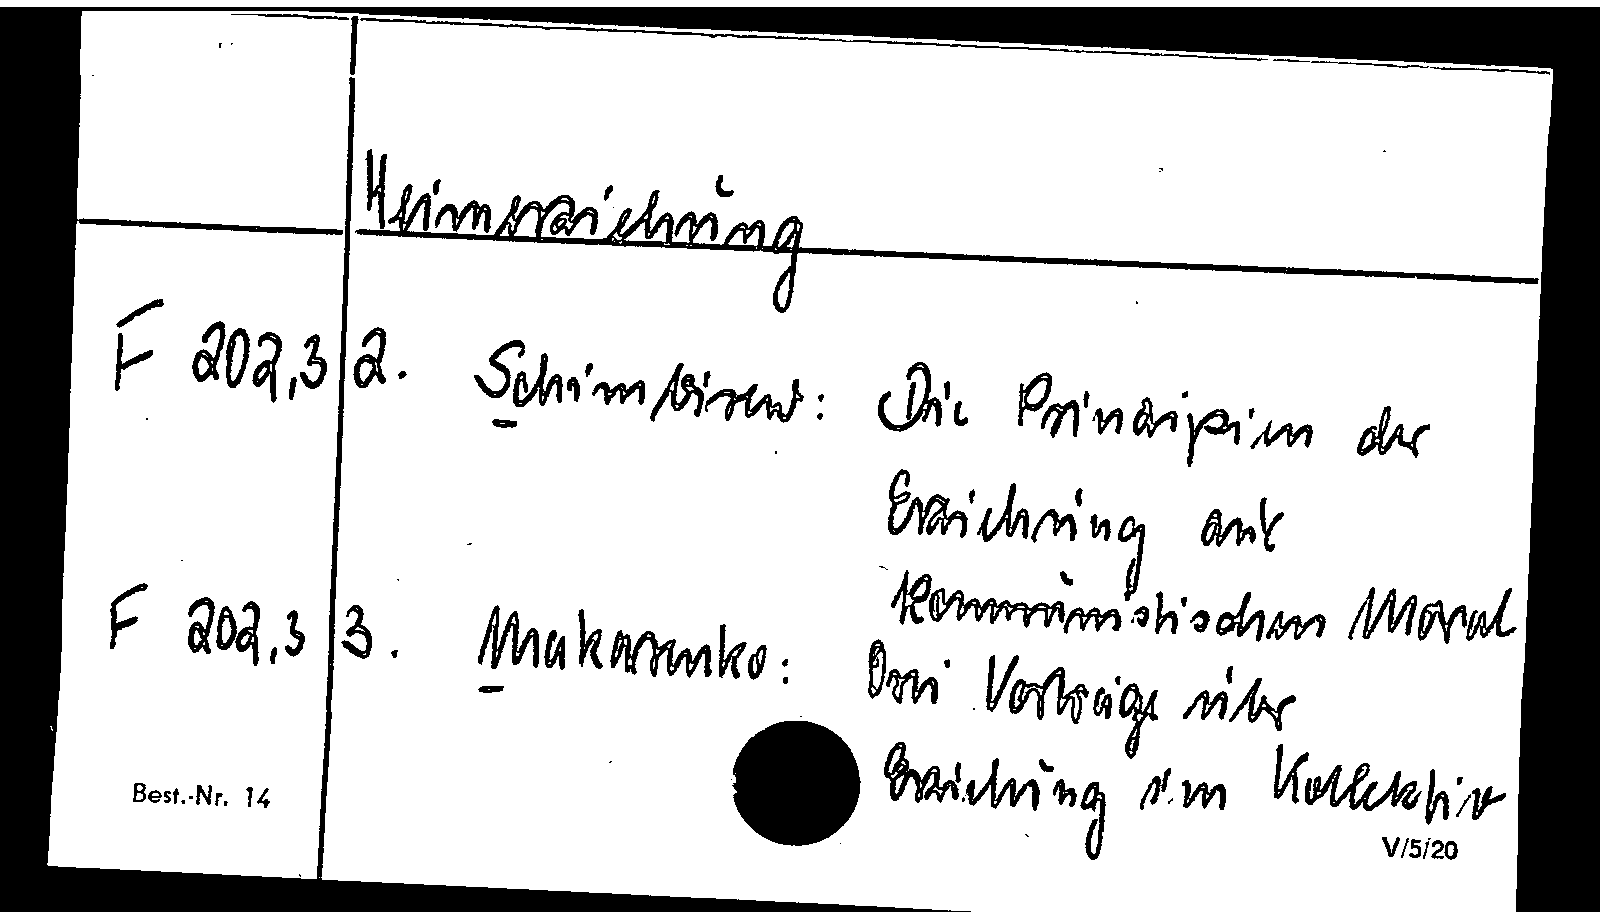 Heimerziehung
F 202,3 2. Schimbirew: Die Prinzipien der
Erziehung auf
kommunistischen Moral
F 202,3 3. Makarenko: Drei Vorträge über
Erziehung im Kollektiv
Best.-Nr. 14
V/5/20